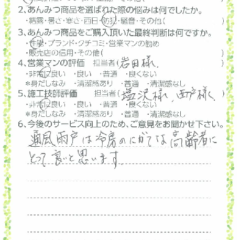 2.あんみつ商品を選ばれた際の悩みは何でしたか。
・暑さ・寒さ・西日・防犯・騒音・その他(
3.あんみつ商品をご購入頂いた最終判断は何ですか。
・性能・ブランド・クチコミ・営業マンの勧め
・販売店の信用・その他(
4.営業マンの評価 担当者 岩田様
・非常に良い ・良い ・普通 ・良くない
*身だしなみ ・清潔感あり ・普通 ・清潔感なし
5.施工技師評価 担当者 塩沢様、西戸様
・非常に良い ・良い ・普通 ・良くない
*身だしなみ ・清潔感あり ・普通 ・清潔感なし
6.今後のサービス向上のため、ご意見をお聞かせ下さい。
通風雨戸は冷房のにがては高齢者に
とって良いと思います。